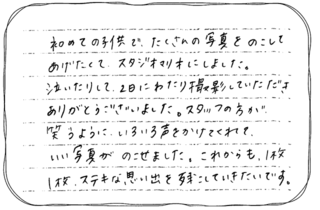 初めての子供で、たくさんの写真をのこして
あげたくて、スタジオマリオにしました。
泣いたりして、2日にわたり撮影していただき
ありがとうございました。スタッフの方が
笑うように、いろいろ声をかけてくれて、
いい写真がのこせました。これからも、1枚
1枚、ステキな思い出を残こしていきたいです。